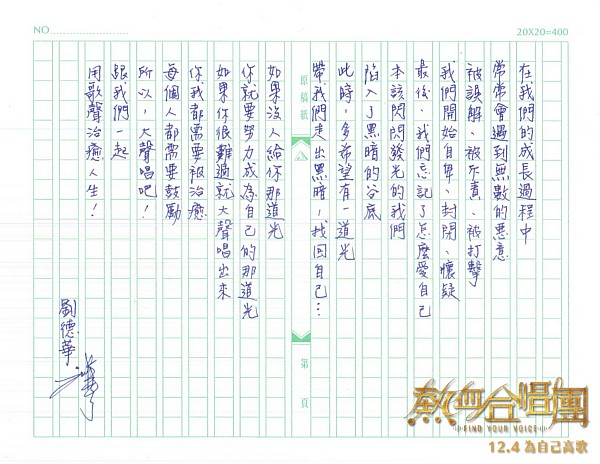 NO
20X20=400
在我們的成長過程中
常常會遇到無數的惡意
被誤解、被斥責、被打擊
我們開始自卑、封閉、懷疑
最後，我們忘記了怎麼愛自己
本該閃閃發光的我們
陷入了黑暗的谷底
此時，多希望有一道光
帶我們走出黑暗，找回自己…
原稿紙
第 頁
如果沒人給你那道光
你就要努力成為自己的那道光
如果你很難過就大聲唱出來
你我都需要被治癒
每個人都需要鼓勵
所以，大聲唱吧！
跟我們一起
用歌聲治癒人生！
劉德華
熱血合唱團
FIND YOUR VOICE
12.4 為自己高歌